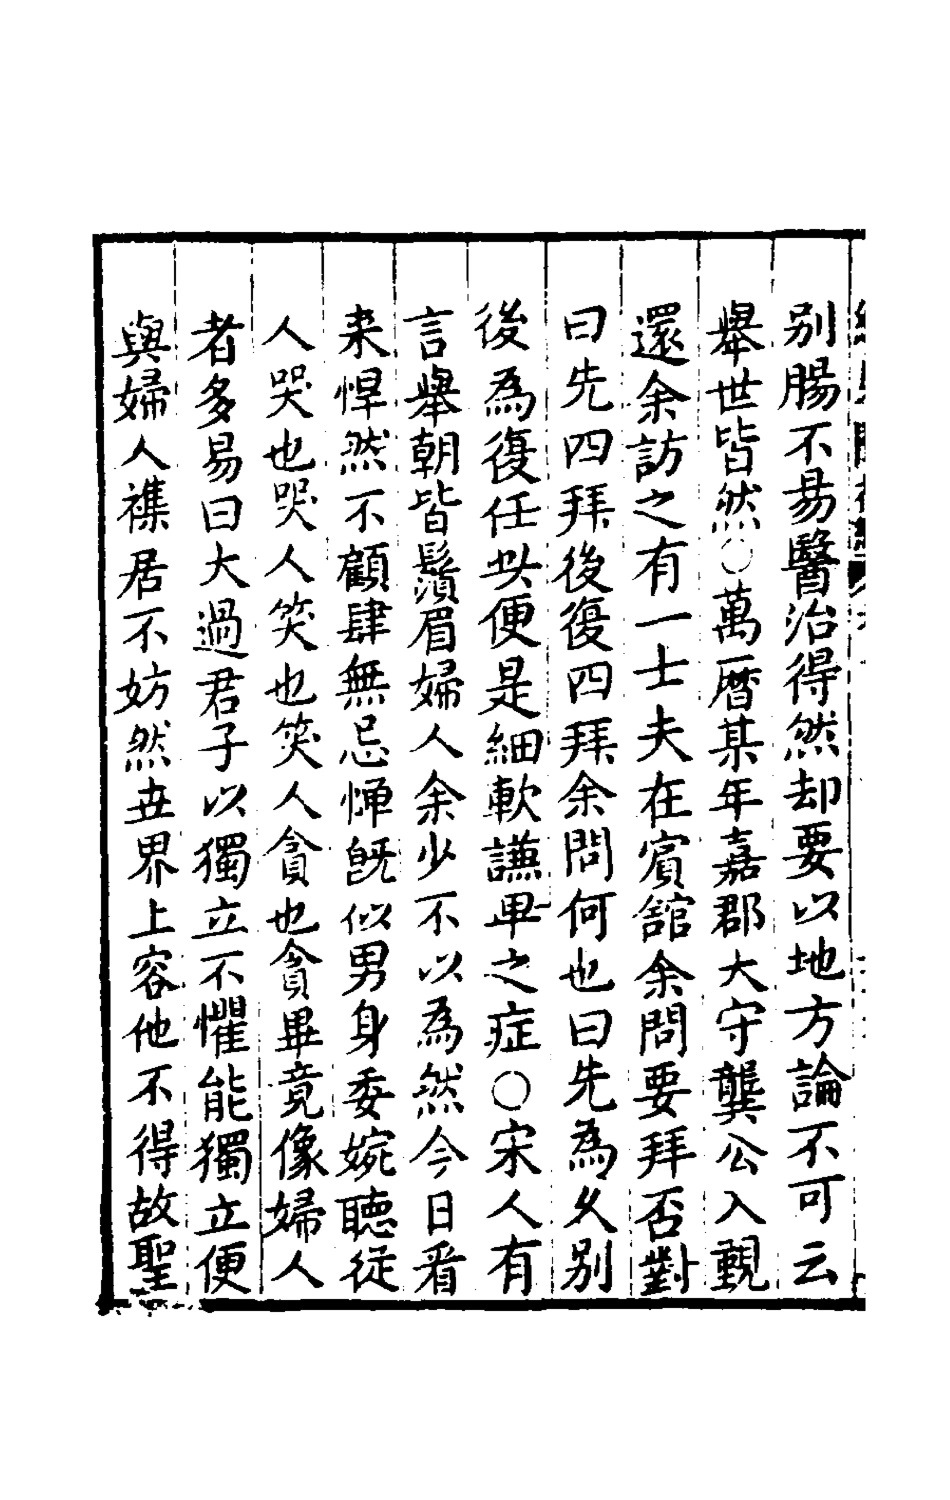 别腸不易醫治得然却要以地方論不可云
舉世皆然○萬曆某年嘉郡大守龔公入覲
還余訪之有一士夫在賓舘余問要拜否對
曰先四拜後復四拜余問何也曰先為久别
後為復任此便是細軟謙卑之症○宋人有
言舉朝皆鬚眉婦人余少不以為然今日看
来悍然不顧肆無忌憚旣似男身委婉聽從
人哭也哭人笑也笑人貪也貪畢竟像婦人
者多易曰大過君子以獨立不懼能獨立便
與婦人襍居不妨然世界上容他不得故聖